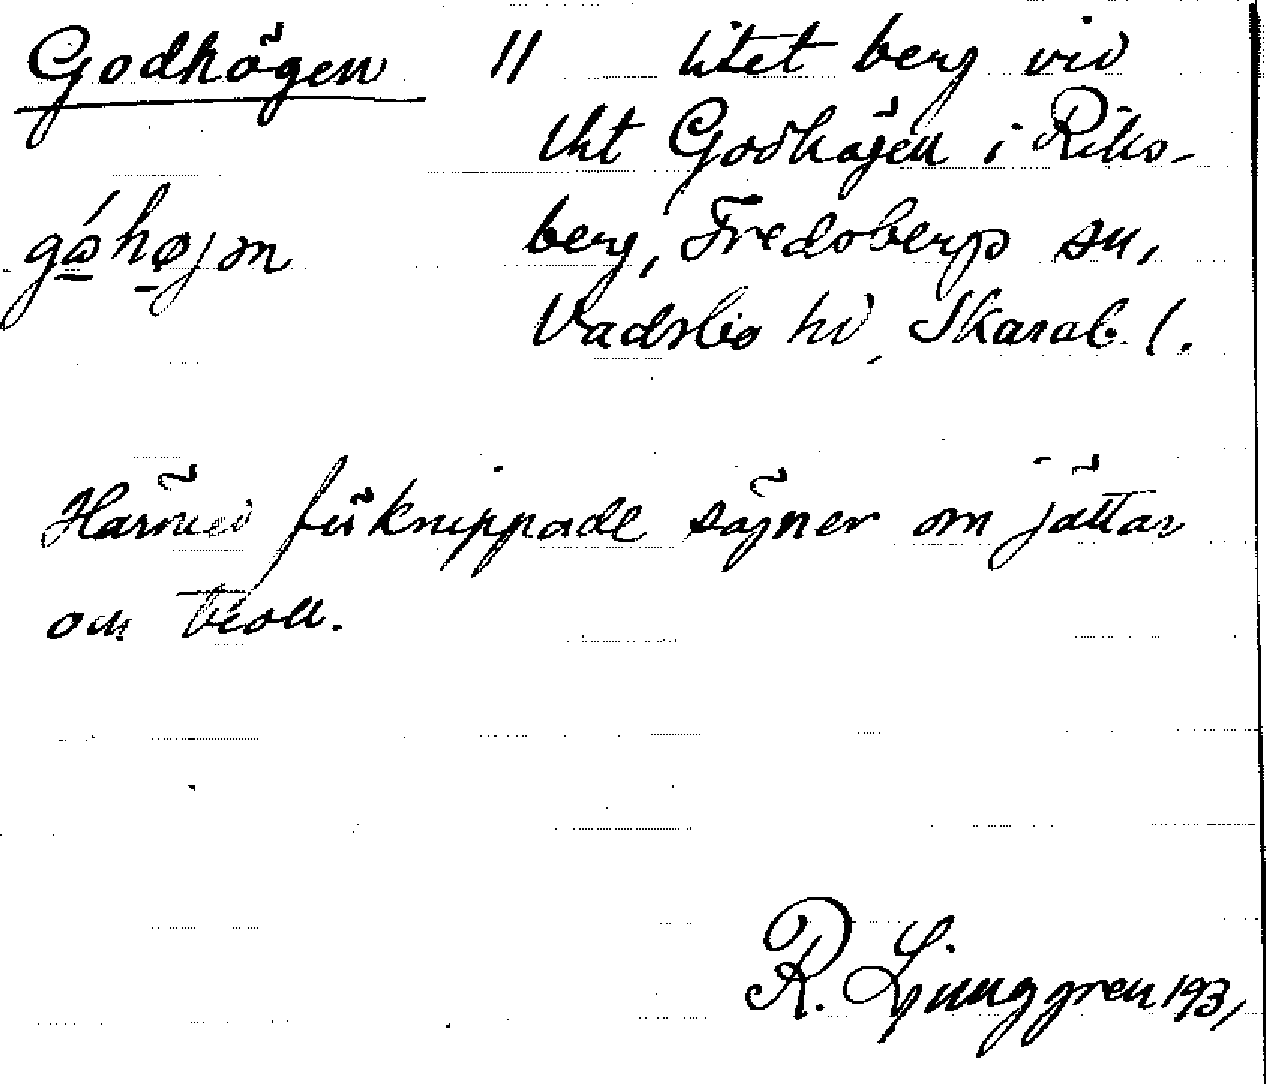 Godhögen // litet berg vid
tht Godhögen i Riks-
berg, Fredsbergs sn,
Vadsbo hd, Skarab. l.
Härmed förknippade sägner om jättar
och troll.
R. Ljunggren 1931